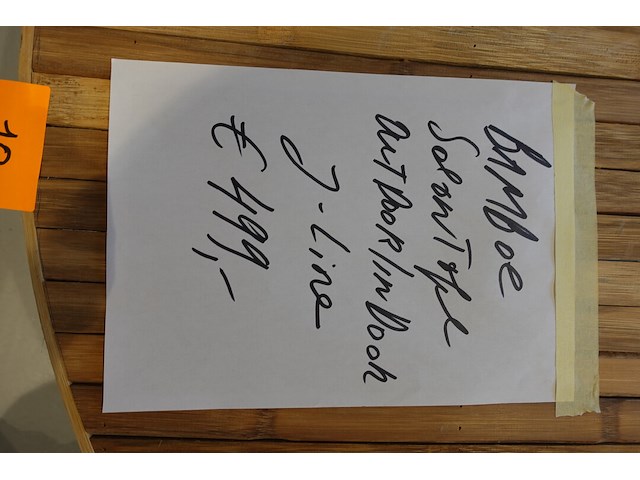 BAMBOE
SALONTAFEL
OUTDOOR/INDOOR
J-Line
€ 499,-
10